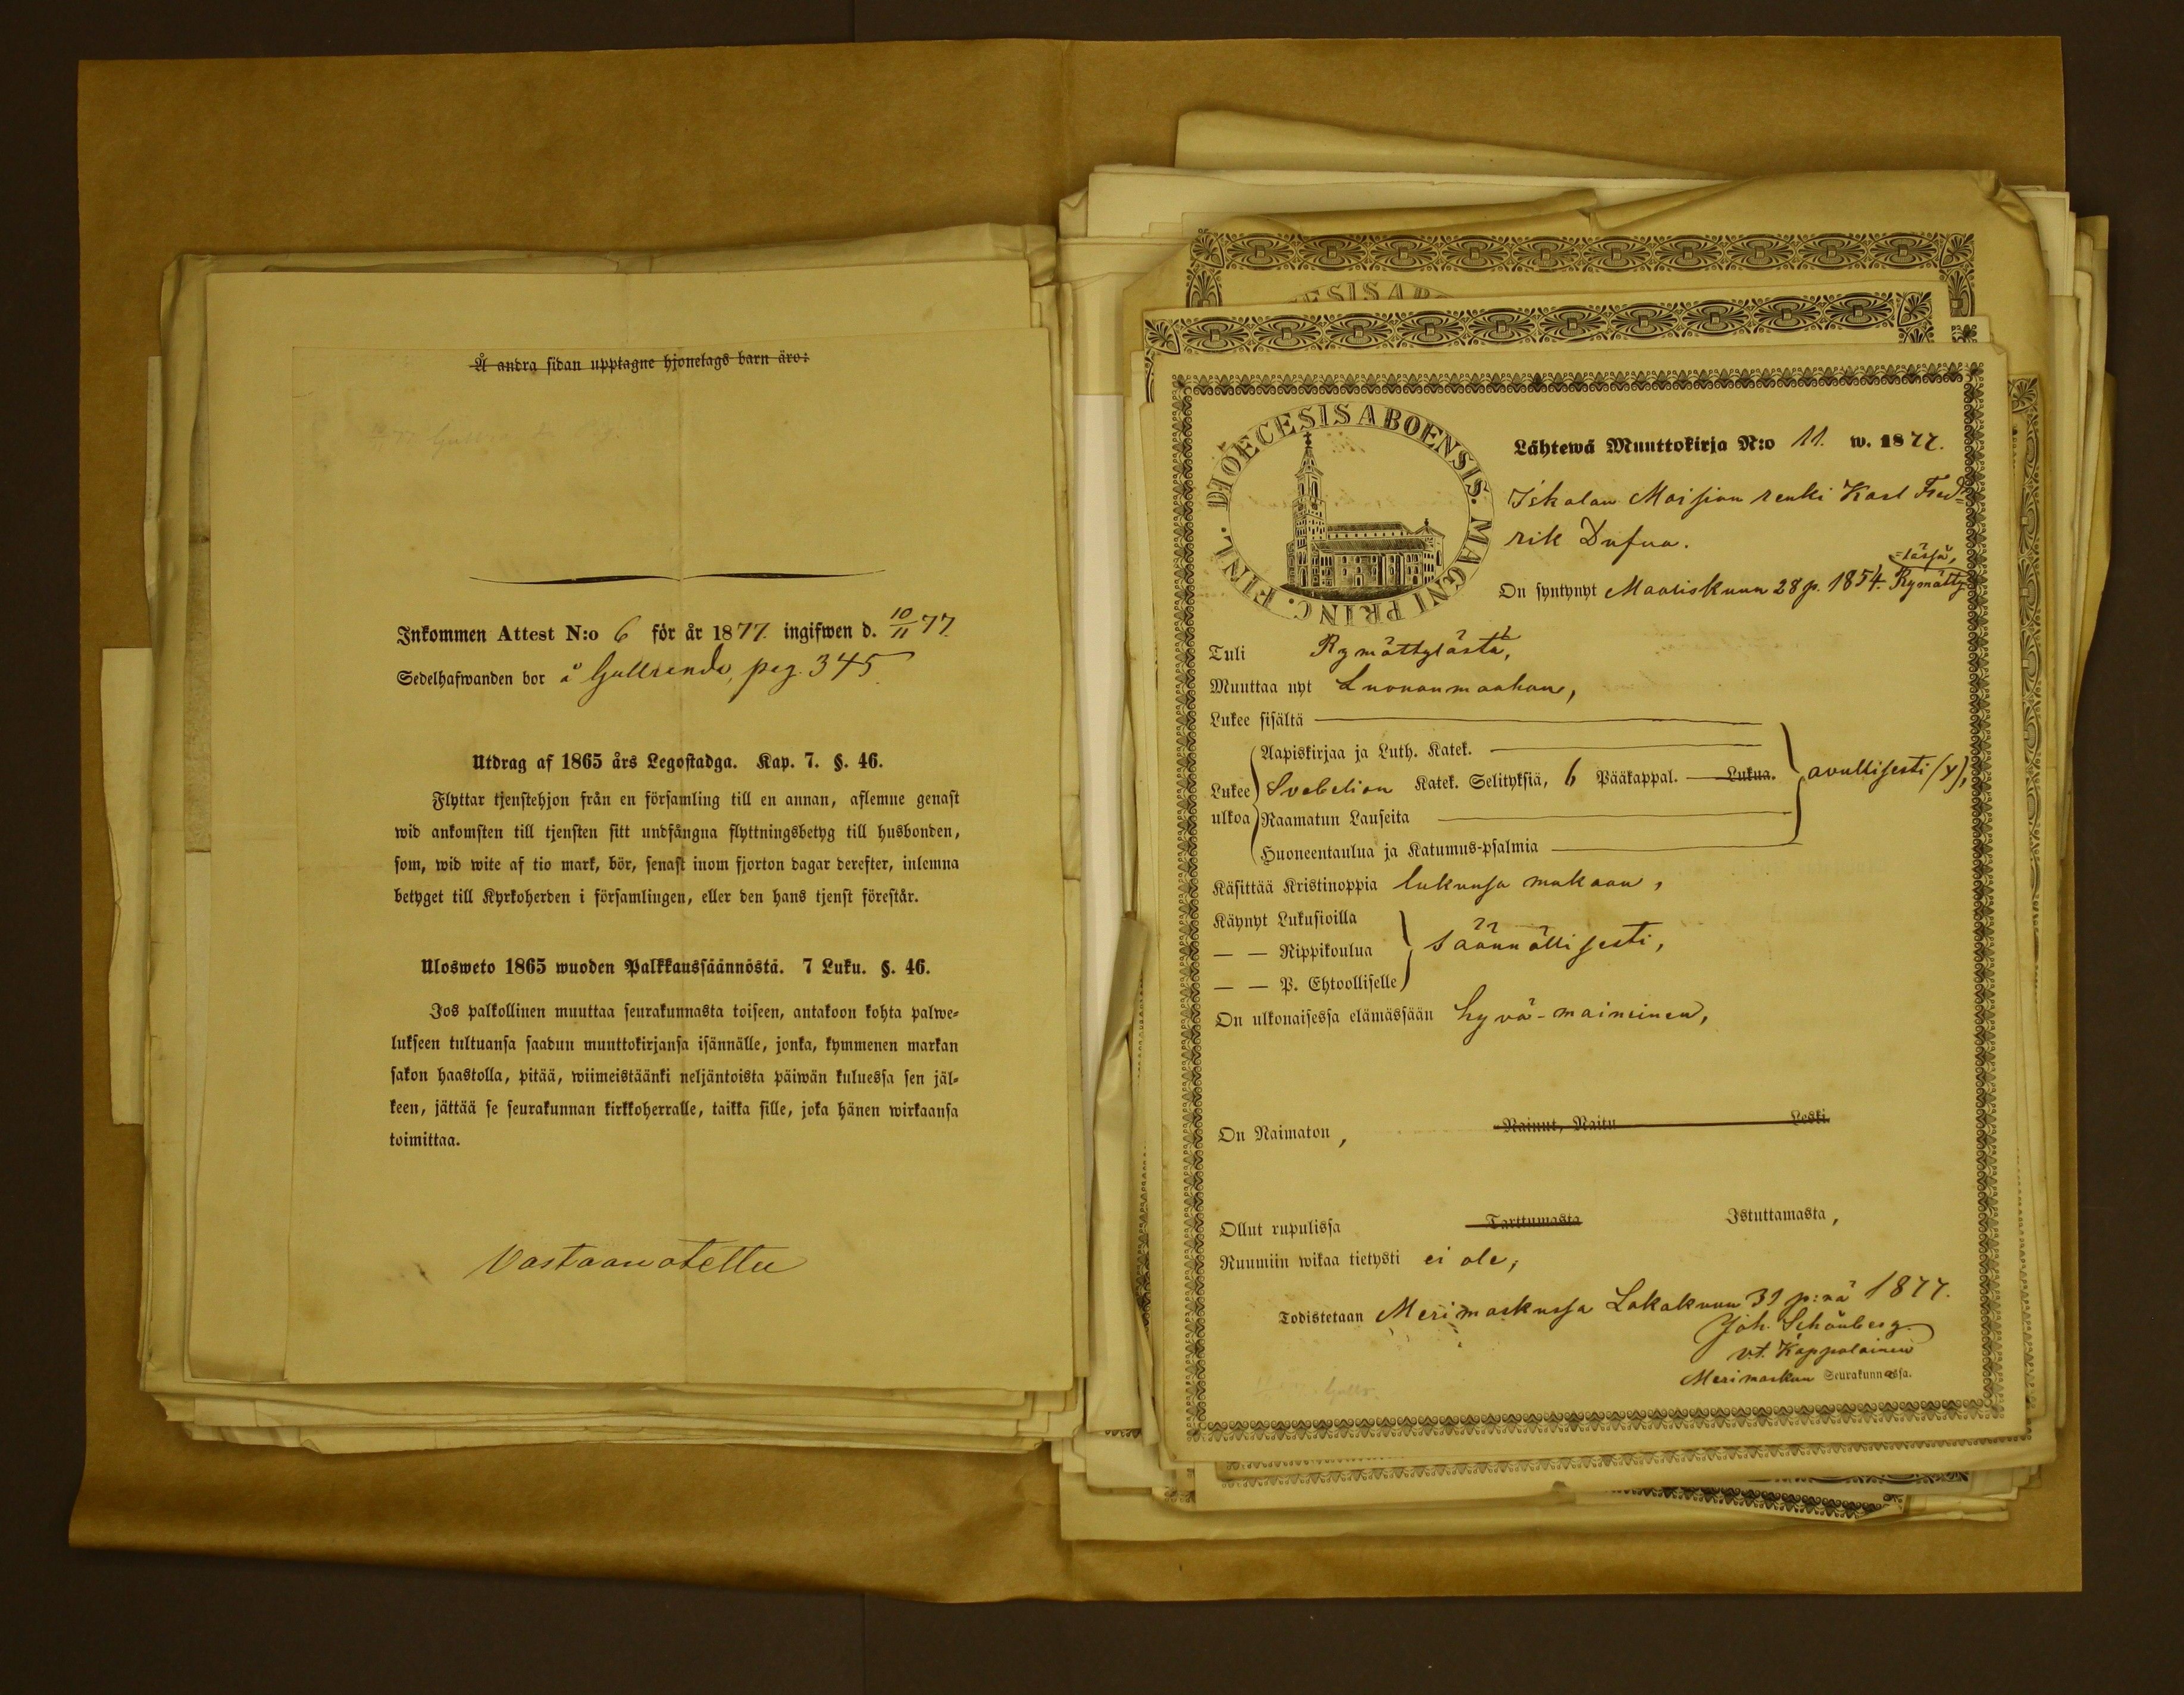 Å andra sidan upptagne hjonelags barn äro:
Inkommen Attest N:o 6 för år 1877. ingifwen d. 10/11 77.
Sedelhafwanden bor å Gullranda, pag. 345
Utdrag af 1865 års Legostadga. Kap. 7. §. 46.
Flyttar tjenstehjon från en församling till en annan, aflemne genast
wid ankomsten till tjensten sitt undfångna flyttningsbetyg till husbonden,
som, wid wite af tio mark, bör, senast inom fjorton dagar derefter, inlemna
betyget till Kyrkoherden i församlingen, eller den hans tjenst förestår.
Ulosweto 1865 wuoden Palkkaussäännöstä. 7 Luku. §. 46.
Jos palkollinen muuttaa seurakunnasta toiseen, antakoon kohta palwe-
lukseen tultuansa saadun muuttokirjansa isännälle, jonka, kymmenen markan
sakon haastolla, pitää, wiimeistäänki neljäntoista päiwän kuluessa sen jäl-
keen, jättää se seurakunnan kirkkoherralle, taikka sille, joka hänen wirkaansa
toimittaa.
Vastaanotettu
DIOECESIS ABOENSIS. MAGNI PRINC. FINL.
Lähtewä Muuttokirja N:o 11. w. 1877.
Iskalan Moision renki Karl Fred-
rik Dufva.
=lässä,
On syntynyt Maaliskuun 28 p. 1854. Rymätty=
Tuli Rymättylästä,
Muuttaa nyt Luonanmaahan,
Lukee sisältä
Aapiskirjaa ja Luth. Katek.
Lukee Svebelion Katek. Selityksiä, 6 Pääkappal. Lukua. avullisesti (y),
ulkoa Raamatun Lauseita
Huoneentaulua ja Katumus-psalmia
Käsittää Kristinoppia lukunsa mukaan,
Käynyt Lukusioilla
— — Rippikoulua säännöllisesti,
— — P. Ehtoolliselle
On ulkonaisessa elämässään hyvä-maineinen,
On Naimaton, Nainut, Naitu Leski.
Ollut rupulissa Tarttumasta Istuttamasta,
Ruumiin wikaa tietysti ei ole,
Todistetaan Merimaskussa Lokakuun 31 p:nä 1877.
Joh. Schönberg
v.t. Kappalainen
Merimaskun Seurakunnassa.